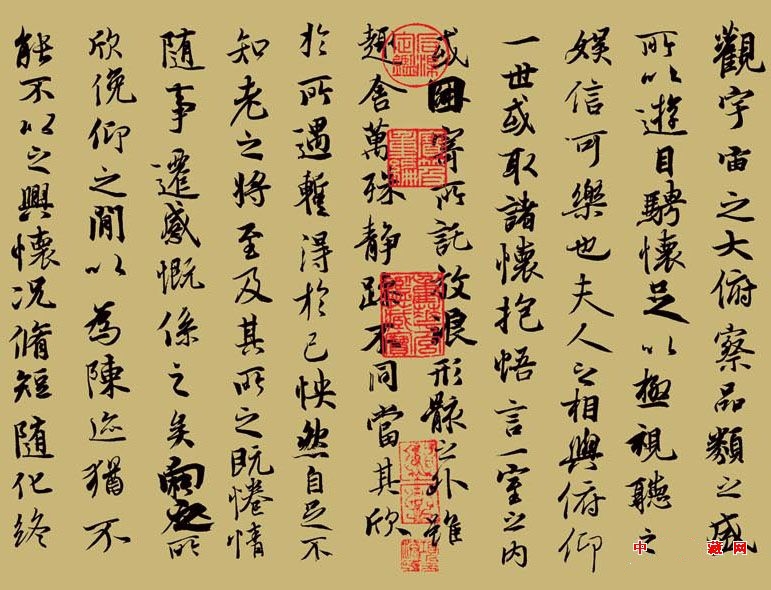 觀宇宙之大俯察品類之盛
所以遊目騁懷足以極視聽之
娛信可樂也夫人之相與俯仰
一世或取諸懷抱悟言一室之內
或因寄所託放浪形骸之外雖
趣舍萬殊静躁不同當其欣
於所遇暫得於己怏然自足不
知老之將至及其所之既惓情
随事遷感慨係之矣向之所
欣俛仰之閒以為陳迹猶不
能不以之興懷況脩短随化終
中 藏网